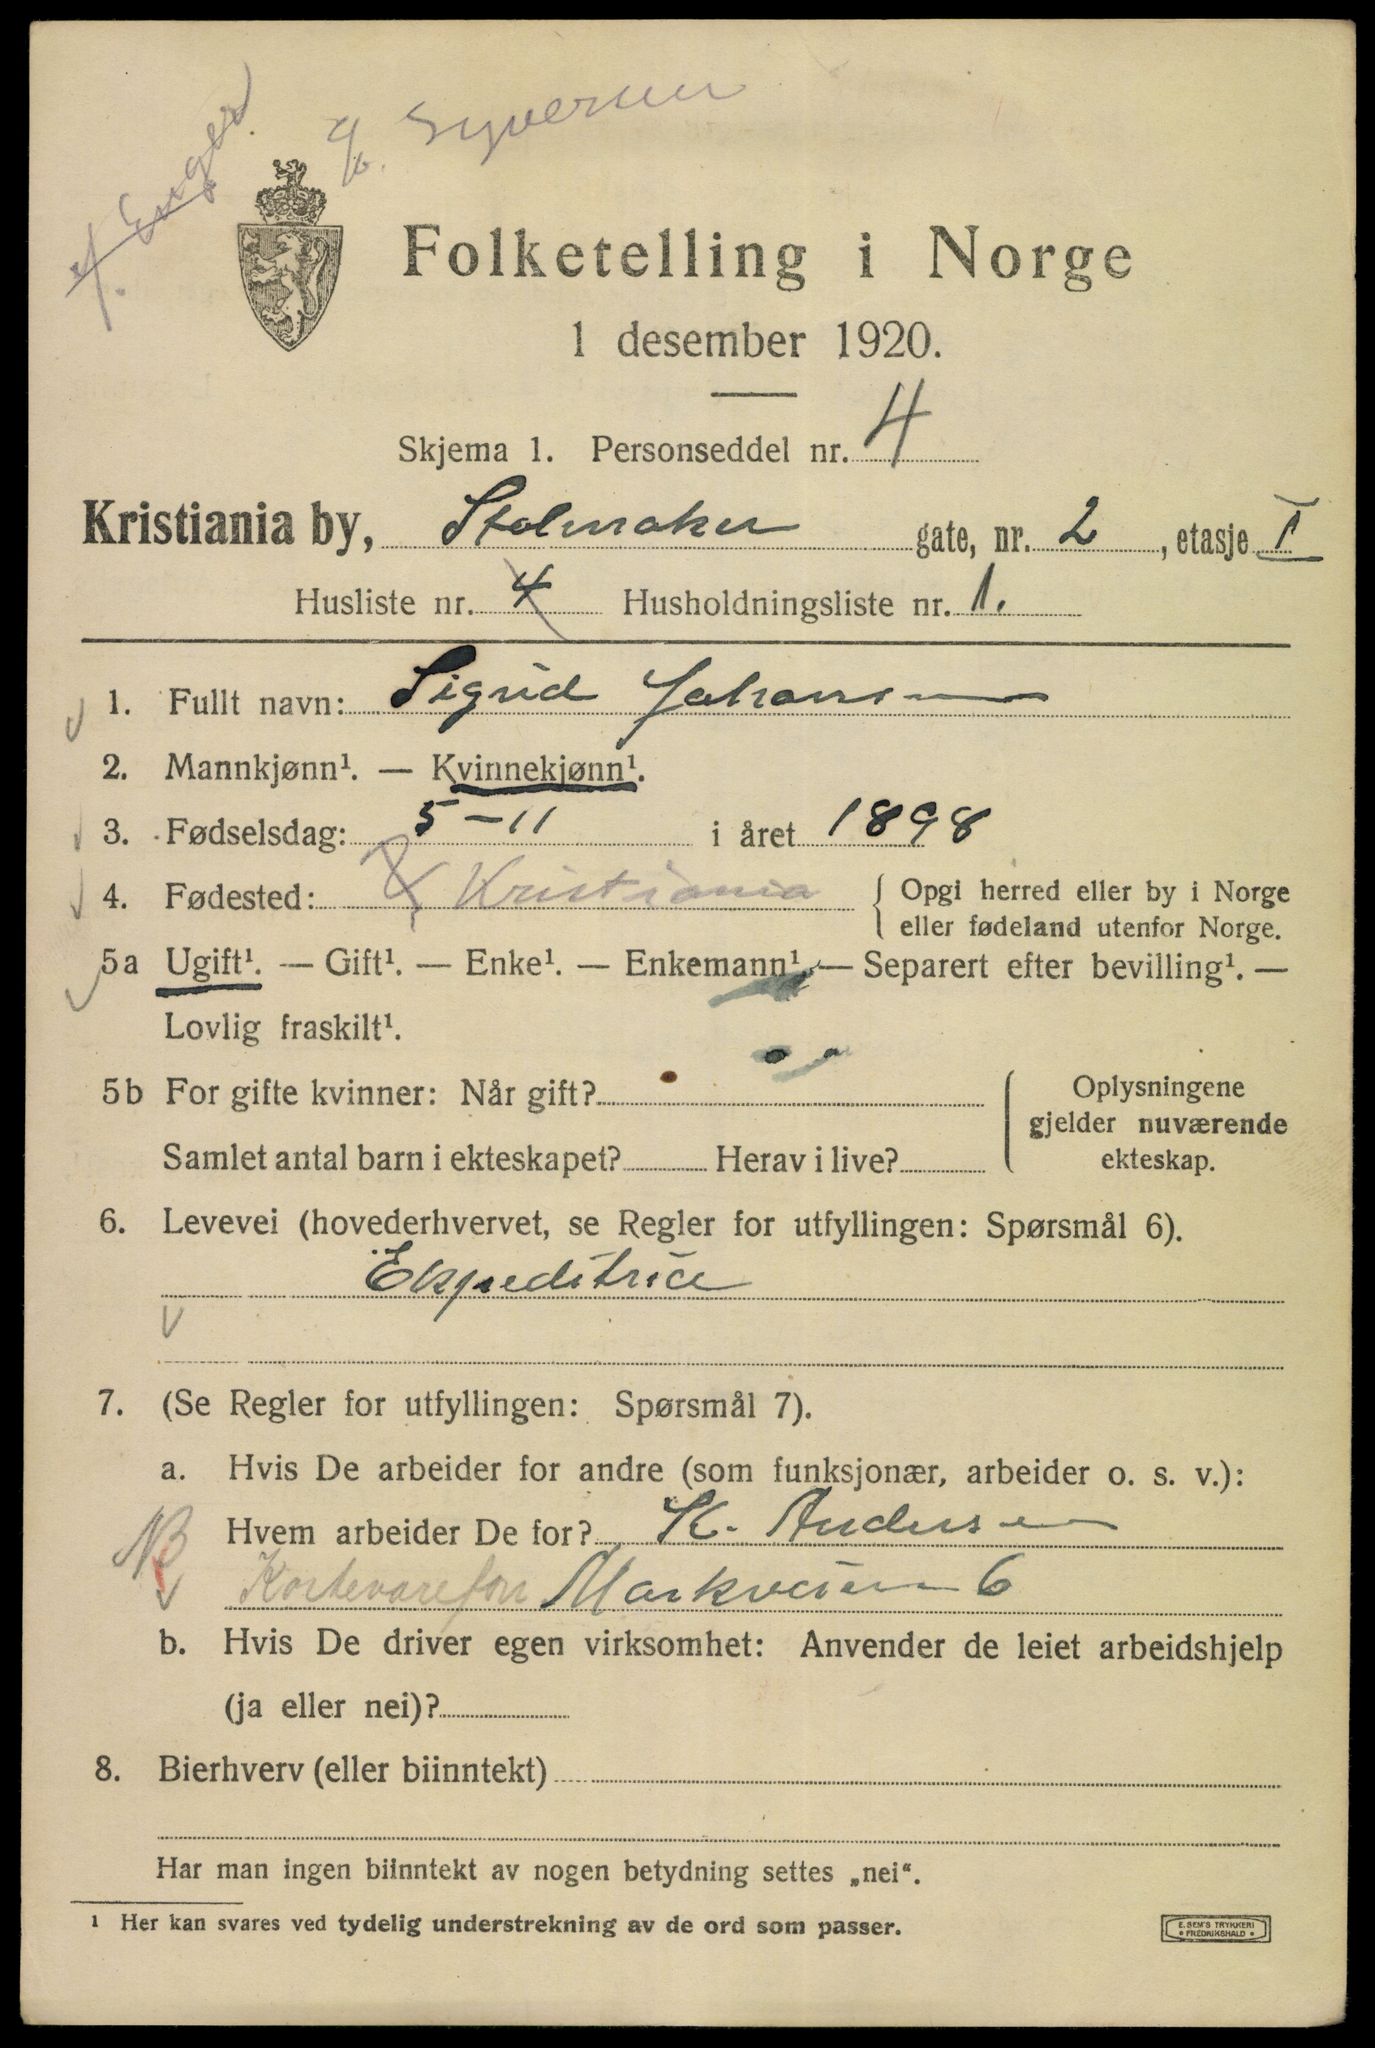 Enger
Syversen
Folketelling i Norge
1 desember 1920.
Skjema 1. Personseddel nr. 4
Kristiania by, Stolmaker gate, nr. 2, etasje I
Husliste nr. 4 Husholdningsliste nr. 1.
1. Fullt navn: Sigrid Johansen
2. Mannkjønn¹. — Kvinnekjønn¹.
3. Fødselsdag: 5-11 i året 1898
4. Fødested: Kristiania { Opgi herred eller by i Norge
eller fødeland utenfor Norge.
5a Ugift¹. — Gift¹. — Enke¹. — Enkemann¹. — Separert efter bevilling¹. —
Lovlig fraskilt¹.
5b For gifte kvinner: Når gift? Oplysningene
gjelder nuværende
Samlet antal barn i ekteskapet? Herav i live? ekteskap.
6. Levevei (hovederhvervet, se Regler for utfyllingen: Spørsmål 6).
Ekspeditrice
7. (Se Regler for utfyllingen: Spørsmål 7).
a. Hvis De arbeider for andre (som funksjonær, arbeider o. s. v.):
NB Hvem arbeider De for? K. Andersen
Kortevareforr Markveien 6
b. Hvis De driver egen virksomhet: Anvender de leiet arbeidshjelp
(ja eller nei)?
8. Bierhverv (eller biinntekt)
Har man ingen biinntekt av nogen betydning settes „nei“.
¹ Her kan svares ved tydelig understrekning av de ord som passer.
E. SEM'S TRYKKERI
FREDRIKSHALD